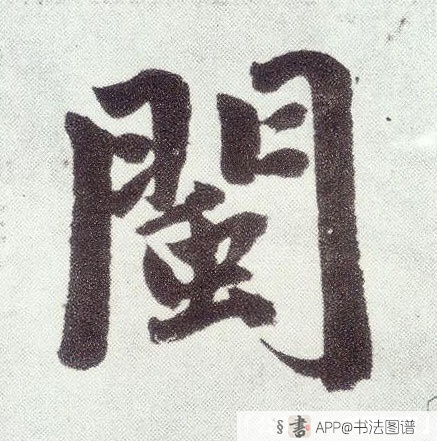 閩
§書 APP@书法图谱